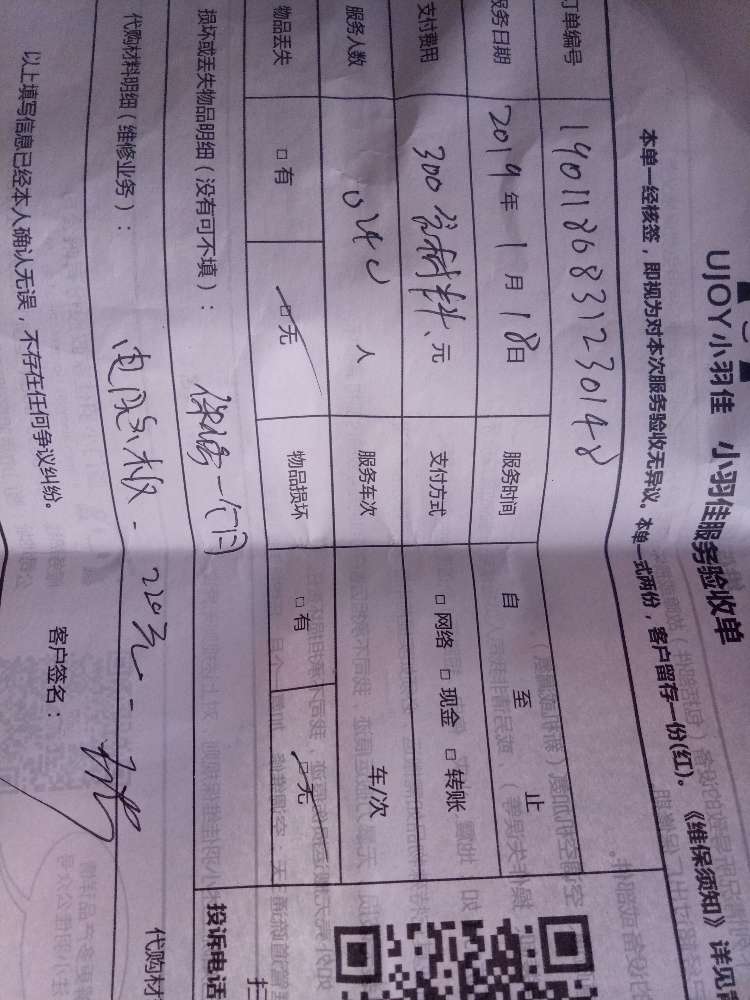 UJOY小羽佳 小羽佳服务验收单
本单一经核签，即视为对本次服务验收无异议。本单一式两份，客户留存一份(红)。《维保须知》详见
订单编号 1901186831230148
服务日期 2019年1月18日 服务时间 自 至 止
支付费用 300含材料、元 支付方式 □ 网络 □ 现金 □ 转账
服务人数 人 服务车次 车/次
物品丢失 □ 有 □ 无 物品损坏 □ 有 □ 无
损坏或丢失物品明细（没有可不填）：
投诉电话
代购材料明细（维修业务）： 220元
代购材
以上填写信息已经本人确认无误，不存在任何争议纠纷。 客户签名：